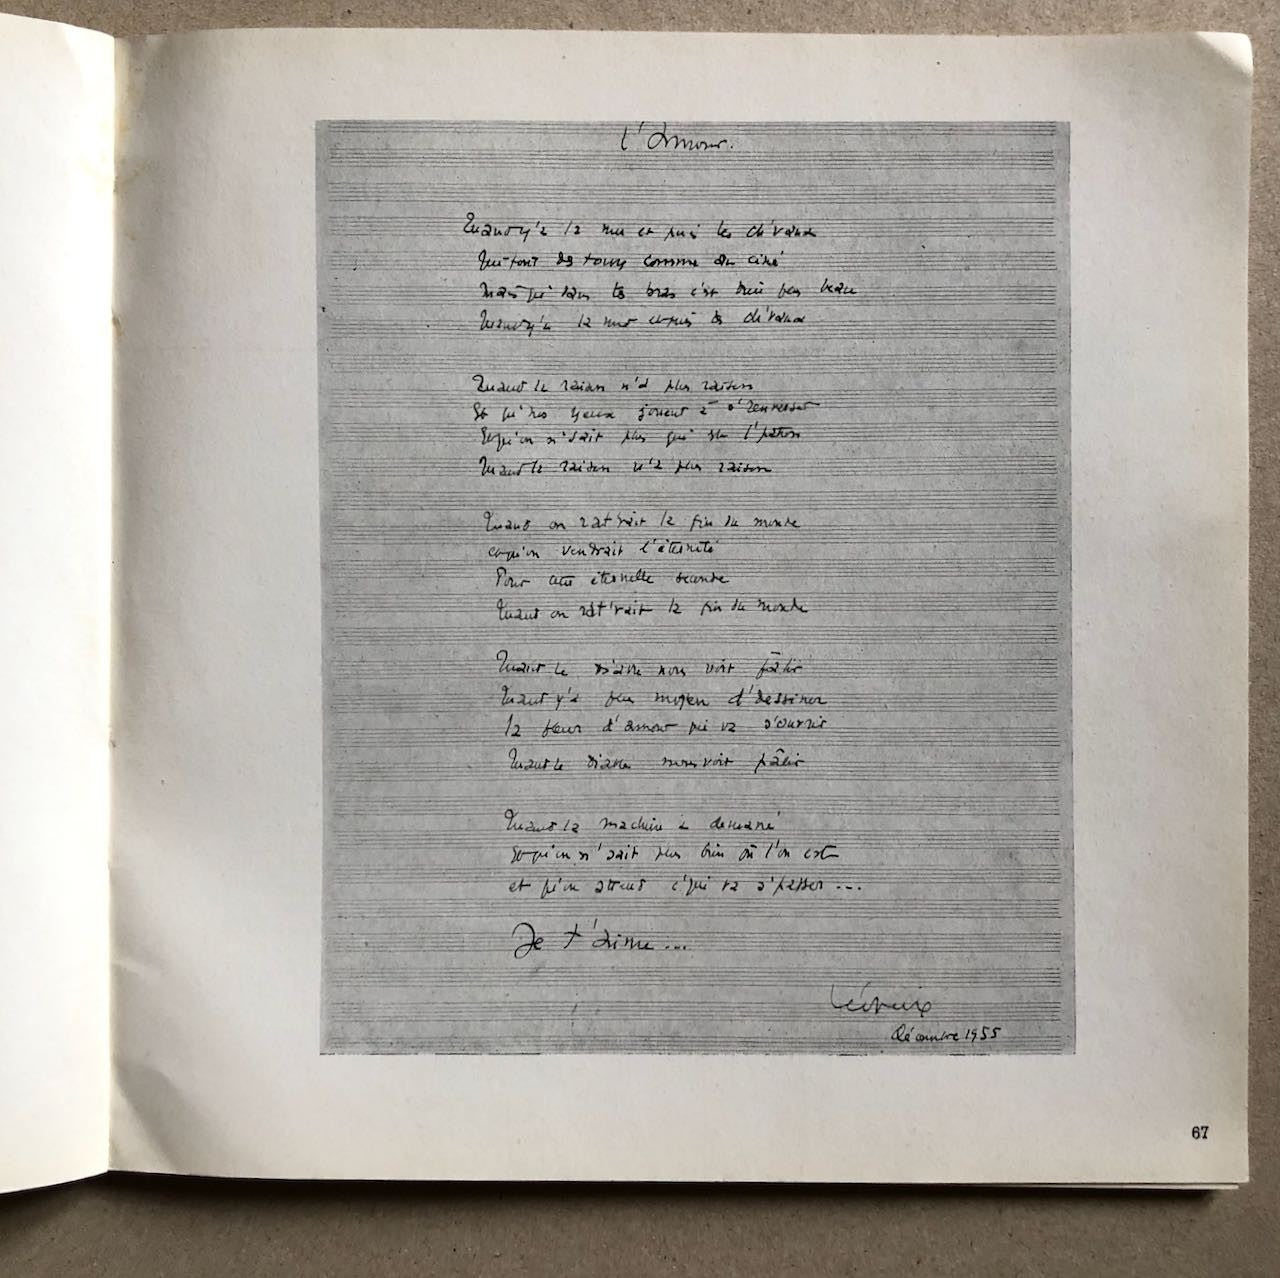 l'Amour.
Quand y'a la mer et puis les ch'vaux
Qui font des tours comme au ciné
Mais qu' dans tes bras c'est bien plus beau
Quand y'a la mer et puis les ch'vaux
Quand la raison n'a plus raison
Et qu'nos yeux jouent à s'renverser
Et qu'on n'sait plus qui est l'patron
Quand la raison n'a plus raison
Quand on rat'rait la fin du monde
et qu'on vendrait l'éternité
Pour cette éternelle seconde
Quand on rat'rait la fin du monde
Quand le diable nous voit pâlir
Quand y'a plus moyen d'dessiner
la fleur d'amour qui va s'ouvrir
Quand le diable nous voit pâlir
Quand la machine a démarré
Et qu'on n'sait plus bien où l'on est
et qu'on attend c'qui va s'passer ...
Je t'aime ...
Décembre 1955
67